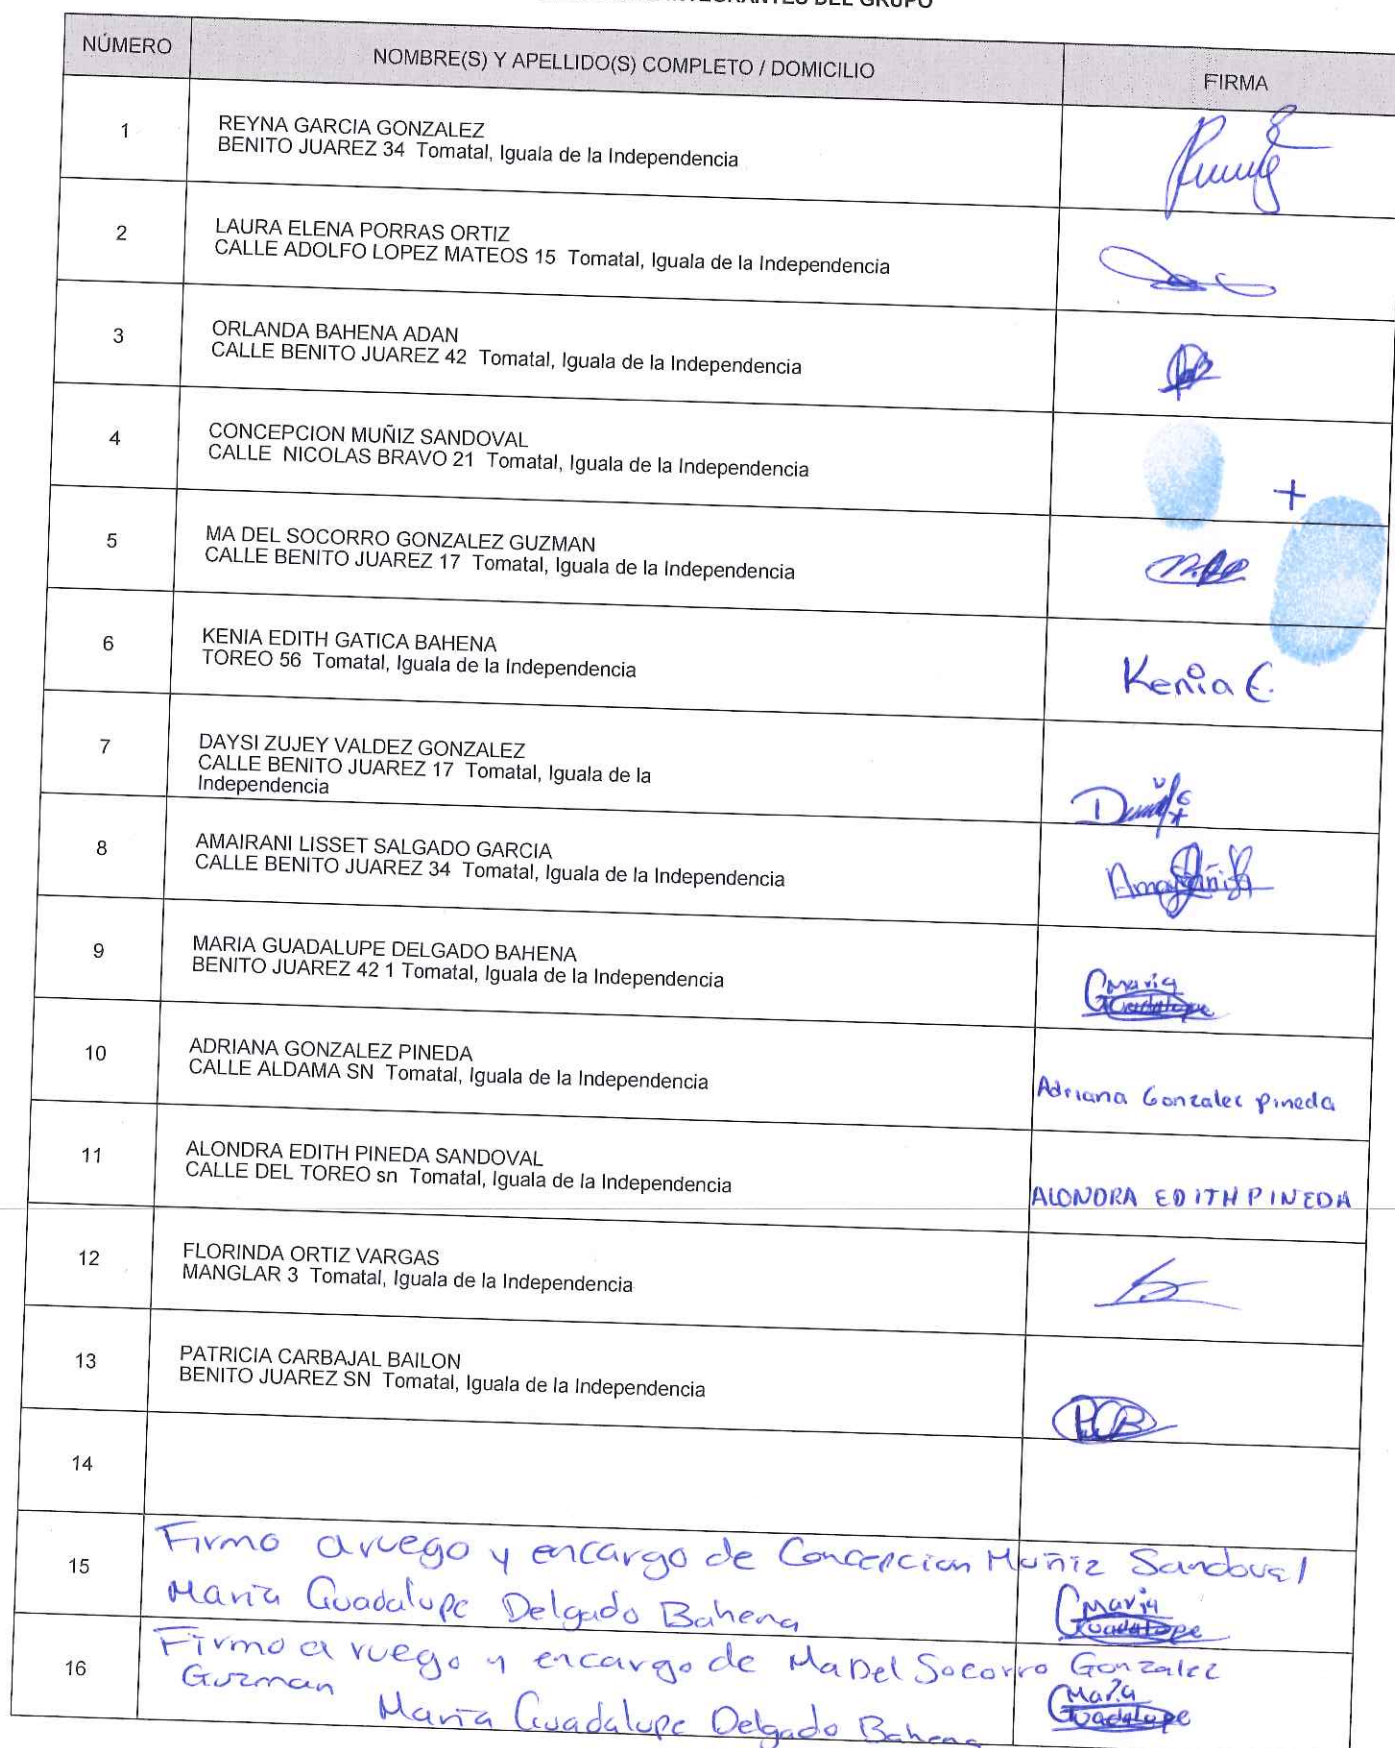 INTEGRANTES DEL GRUPO
NÚMERO NOMBRE(S) Y APELLIDO(S) COMPLETO / DOMICILIO FIRMA
1 REYNA GARCIA GONZALEZ
BENITO JUAREZ 34 Tomatal, Iguala de la Independencia
2 LAURA ELENA PORRAS ORTIZ
CALLE ADOLFO LOPEZ MATEOS 15 Tomatal, Iguala de la Independencia
3 ORLANDA BAHENA ADAN
CALLE BENITO JUAREZ 42 Tomatal, Iguala de la Independencia
4 CONCEPCION MUÑIZ SANDOVAL
CALLE NICOLAS BRAVO 21 Tomatal, Iguala de la Independencia
+
5 MA DEL SOCORRO GONZALEZ GUZMAN
CALLE BENITO JUAREZ 17 Tomatal, Iguala de la Independencia
6 KENIA EDITH GATICA BAHENA
TOREO 56 Tomatal, Iguala de la Independencia
Kenia E.
7 DAYSI ZUJEY VALDEZ GONZALEZ
CALLE BENITO JUAREZ 17 Tomatal, Iguala de la
Independencia
8 AMAIRANI LISSET SALGADO GARCIA
CALLE BENITO JUAREZ 34 Tomatal, Iguala de la Independencia
9 MARIA GUADALUPE DELGADO BAHENA
BENITO JUAREZ 42 1 Tomatal, Iguala de la Independencia
Maria
Guadalupe
10 ADRIANA GONZALEZ PINEDA
CALLE ALDAMA SN Tomatal, Iguala de la Independencia
Adriana Gonzalez pineda
11 ALONDRA EDITH PINEDA SANDOVAL
CALLE DEL TOREO sn Tomatal, Iguala de la Independencia
ALONDRA EDITH PINEDA
12 FLORINDA ORTIZ VARGAS
MANGLAR 3 Tomatal, Iguala de la Independencia
13 PATRICIA CARBAJAL BAILON
BENITO JUAREZ SN Tomatal, Iguala de la Independencia
PCB
14
15 Firmo a ruego y encargo de Concepcion Muñiz Sandoval
Maria Guadalupe Delgado Bahena
Maria
Guadalupe
16 Firmo a ruego y encargo de Ma Del Socorro Gonzalez
Guzman
Maria Guadalupe Delgado Bahena
Maria
Guadalupe